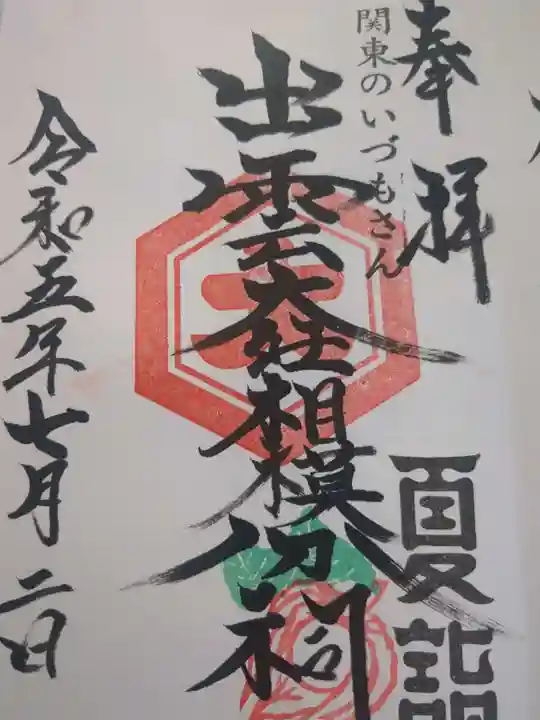 奉拝
関東のいづもさん
夏詣
出雲大社相模分祠
令和五年七月二日